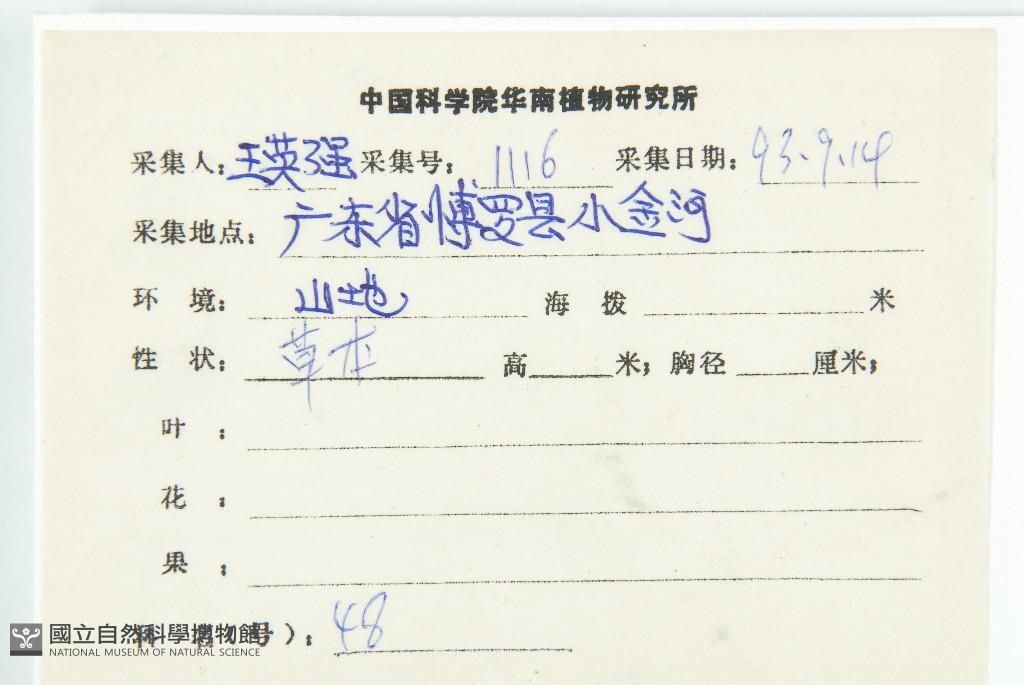 中国科学院华南植物研究所
采集人:王英强 采集号: 1116 采集日期: 93.9.14
采集地点: 广东省博罗县小金河
环 境: 山地 海 拨 米
性 状: 草本 高 米; 胸径 厘米;
叶 :
花 :
果 :
号): 48
國立自然科學博物館
NATIONAL MUSEUM OF NATURAL SCIENCE